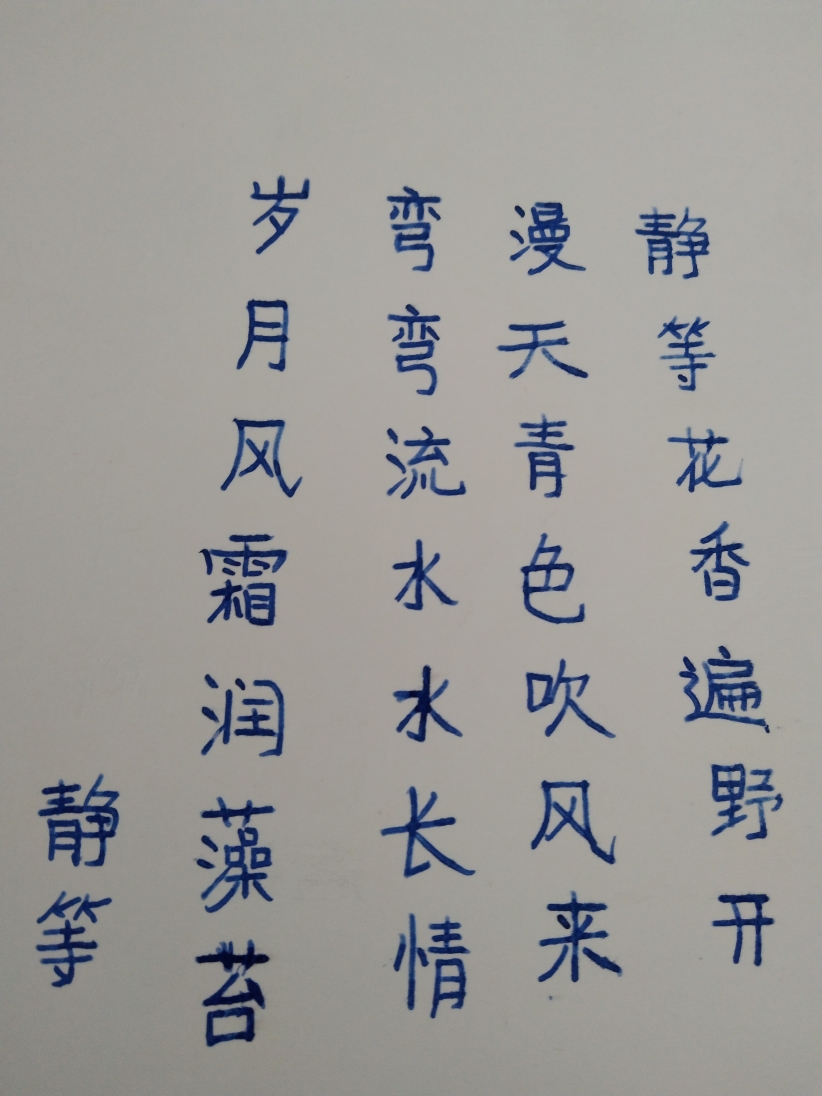 静等花香遍野开
漫天青色吹风来
弯弯流水水长情
岁月风霜润藻苔
静等